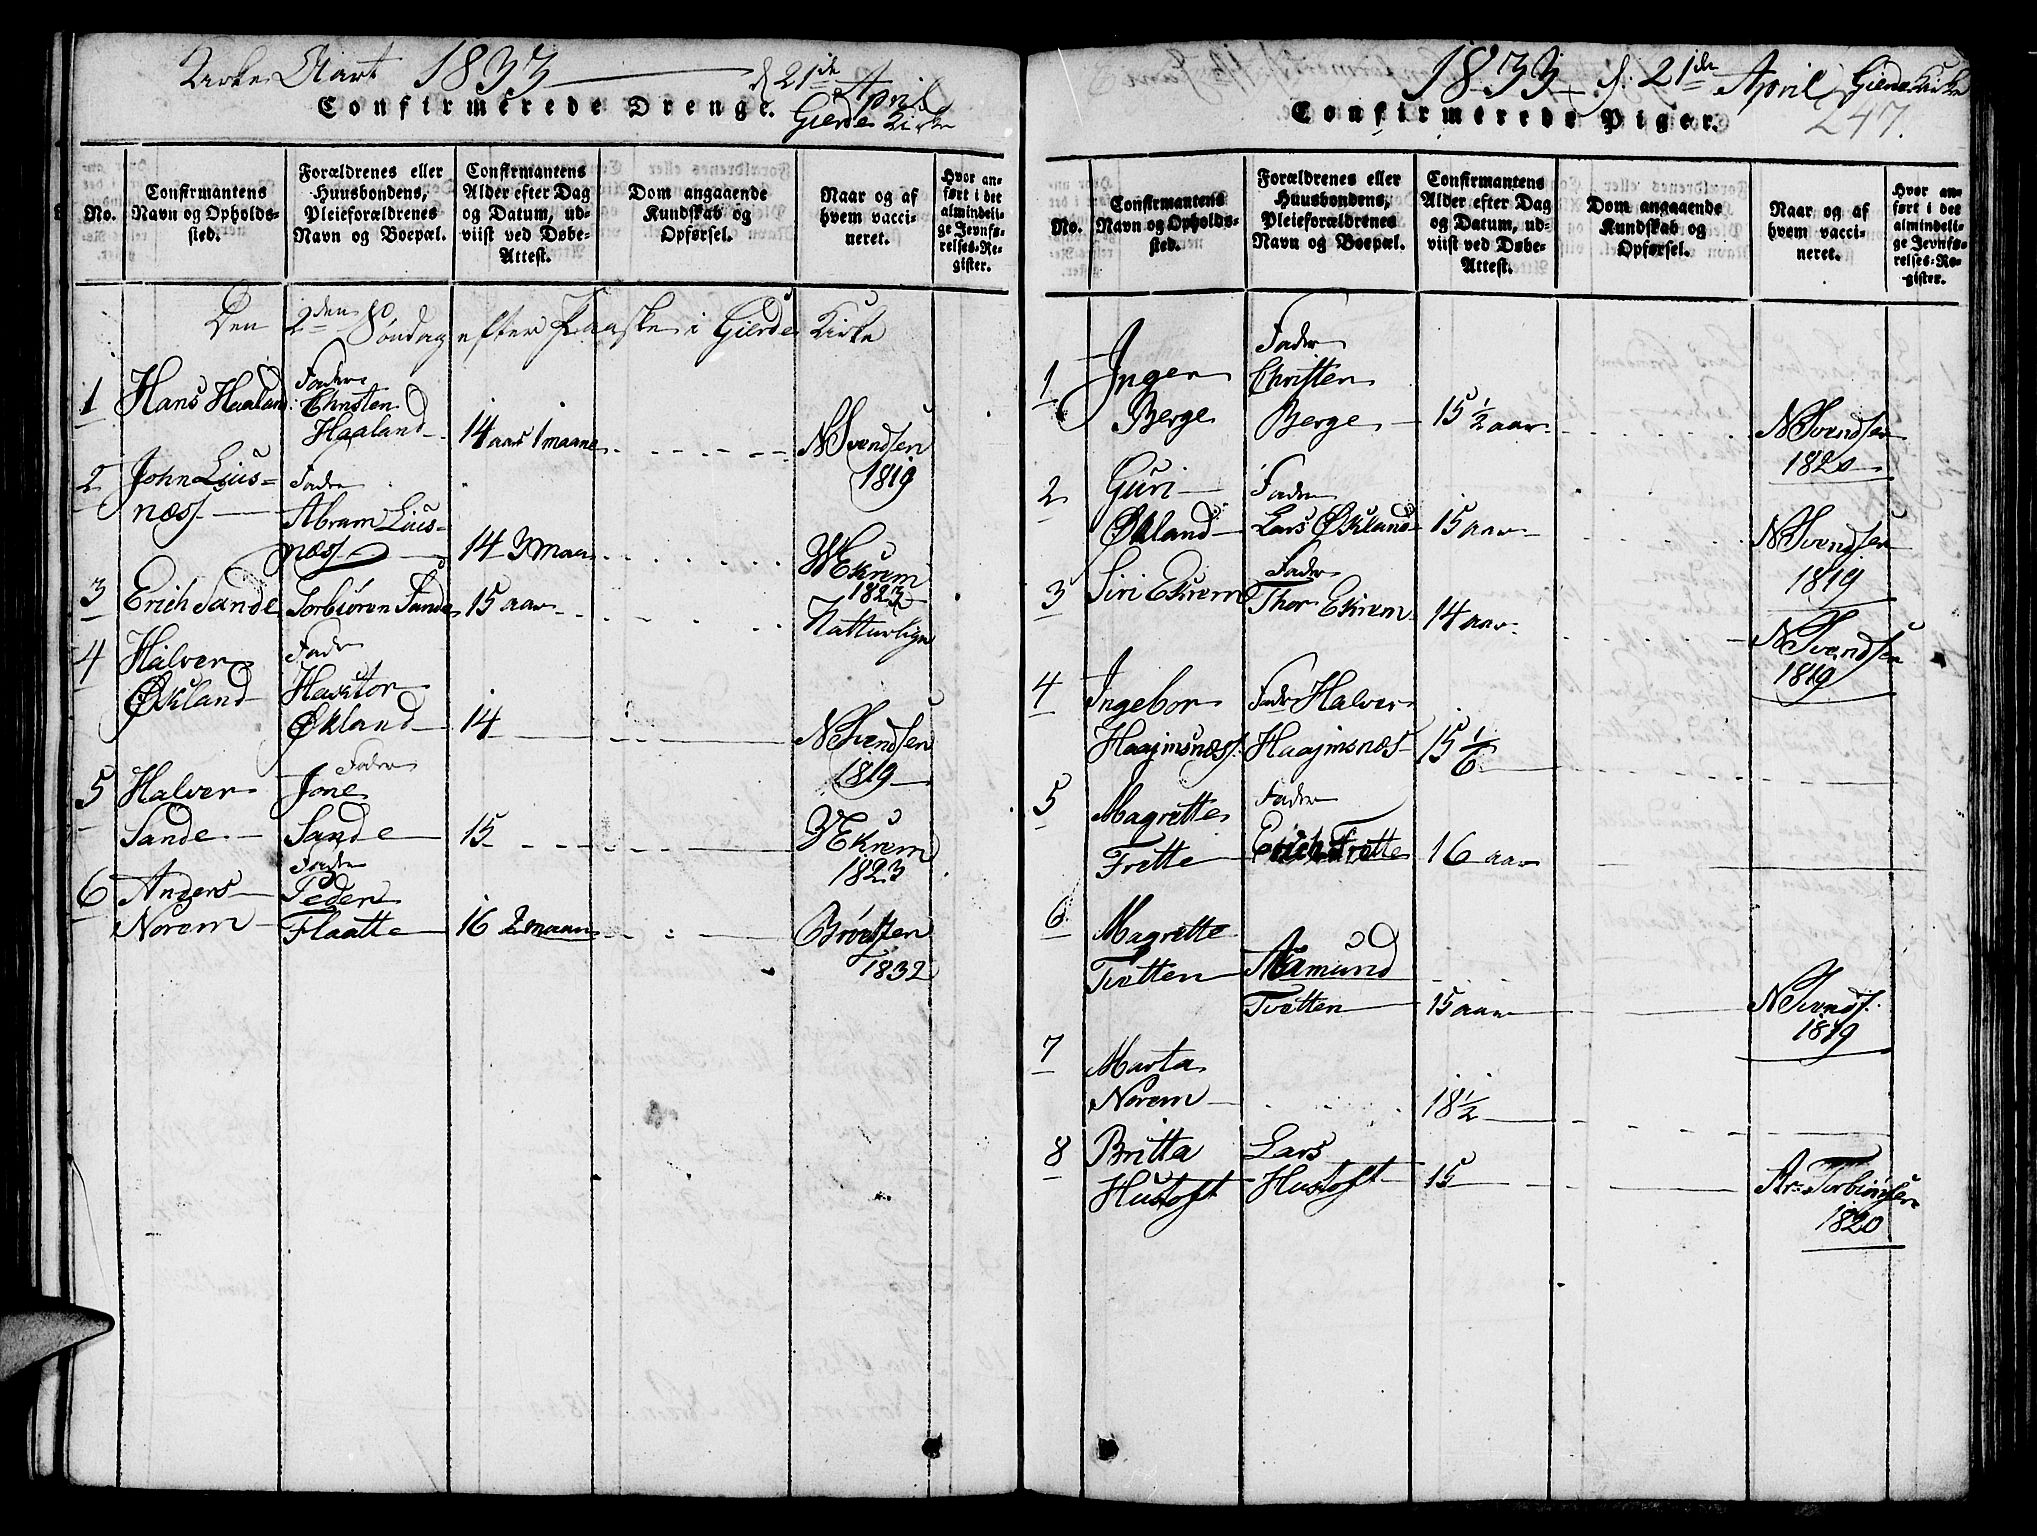 Kirke Aart 1833 d 21de April
Gierde Kirke
Confirmerede Drenge.
No.
Confirmantens
Navn og Opholds-
sted.
Forældrenes eller
Huusbondens,
Pleieforældrenes
Navn og Boepæl.
Confirmantens
Alder efter Dag
og Datum, ud-
viist ved Døbe-
Attest.
Dom angaaende
Kundskab og
Opførsel.
Naar og af
hvem vacci-
neret.
Hvor an-
ført i det
almindeli-
ge Jevnfø-
relses-Re-
gister.
Den 2den Søndag efter Paaske i Gierde Kirke
1 Hans Haaland
Fader
Christen
Haaland
14 aar 1 maane
N Svendsen
1819
2 John Lius-
næs
Fader
Abram Lius-
næs
14 3 maan
W Ekrem
1823
3 Erich Sande
Torbiören Sande
15 aar
Natturlige
4 Halver
Økland
Fader
Haktor
Økland
14
N Svendsen
1819
5 Halver
Sande
Fader
Jone
Sande
15
W Ekrem
1823
6 Anders
Norem
Fader
Peder
Flaatte
16 2 maan
1832
1833 d: 21de April Gierde Kirke
247.
Confirmerede Piger.
No.
Confirmantens
Navn og Opholds-
sted.
Forældrenes eller
Huusbondens,
Pleieforældrenes
Navn og Boepæl.
Confirmantens
Alder efter Dag
og Datum, ud-
viist ved Døbe-
Attest.
Dom angaaende
Kundskab og
Opførsel.
Naar og af
hvem vacci-
neret.
Hvor an-
ført i det
almindeli-
ge Jevnfø-
relses-Re-
gister.
1 Inger
Berge
Fader
Christen
Berge
15 1/2 aar
N Svendsen
1820
2 Guri
Økland
Fader
Lars Økland
15 aar
N Svendsen
1819
3 Siri Ekrem
Fader
Thor Ekrem
14 aar
N Svendsen
1819
4 Ingebor
Haajmsnæs
Fader Halver
Haajmsnæs
15 1/6
5 Magrette
Frette
Fader
Erich Frette
16 aar
6 Magrette
Tvetten
Aamund
Tvetten
15 aar
N Svends.
1819
7 Marta
Norem
18 1/2
8 Britta
Hustoft
Lars
Hustoft
15
Ar: Torbiönsen
1820